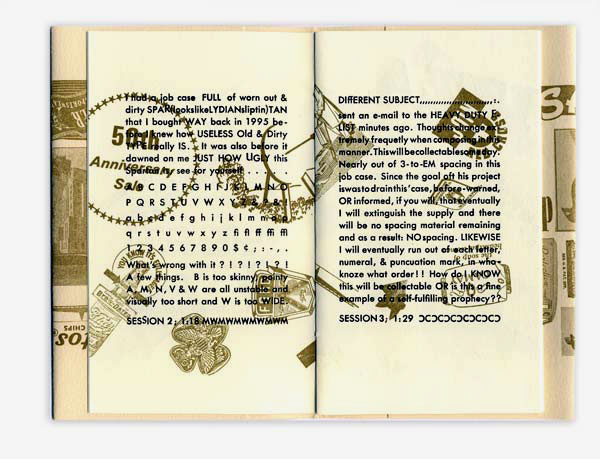 I had a job case FULL of worn out &
dirty SPAR(lookslikeLYDIANsliptin)TAN
that I bought WAY back in 1995 be-
fore I knew how USELESS Old & Dirty
TYPE really IS. It was also before it
dawned on me JUST HOW UGLY this
Spartan is; see for yourself
A B C D E F G H I J K L M N O
P Q R S T U V W X Y Z & ? &
a b c d e f g h i j k l m n o p
q r s t u v w x y z fi fl ff ffi ffl
1 2 3 4 5 6 7 8 9 0 $ ¢ ; : - , .
What's wrong with it ? ! ? ! ? ! ? !
A few things. B is too skinny, pointy
A, M, N, V & W are all unstable and
visually too short and W is too WIDE.
SESSION 2; 1:18 MWMWMWMWMWM
50th
Anniversary
Sale
YOU KNOW IT'S
CHIPS
DIFFERENT SUBJECT,,,,,,,,,,,,,,,,,,,,,,,;:.
sent an e-mail to the HEAVY DUTY E-
LIST minutes ago. Thoughts change ex-
tremely frequetly when composing in this
manner. Thiswillbecollectablesomeday.
Nearly out of 3-to-EM spacing in this
job case. Since the goal ofh his project
iswastodrainthis'case, before-warned,
OR informed, if you will, that eventually
I will extinguish the supply and there
will be no spacing material remaining
and as a result: NO spacing. LIKEWISE
I will eventually run out of each letter,
numeral, & puncuation mark, in wha-
knoze what order!! How do I KNOW
this will be collectable OR is this a fine
example of a self-fulfilling prophecy??
SESSION 3; 1:29 ƆCƆCƆCƆCƆCƆC